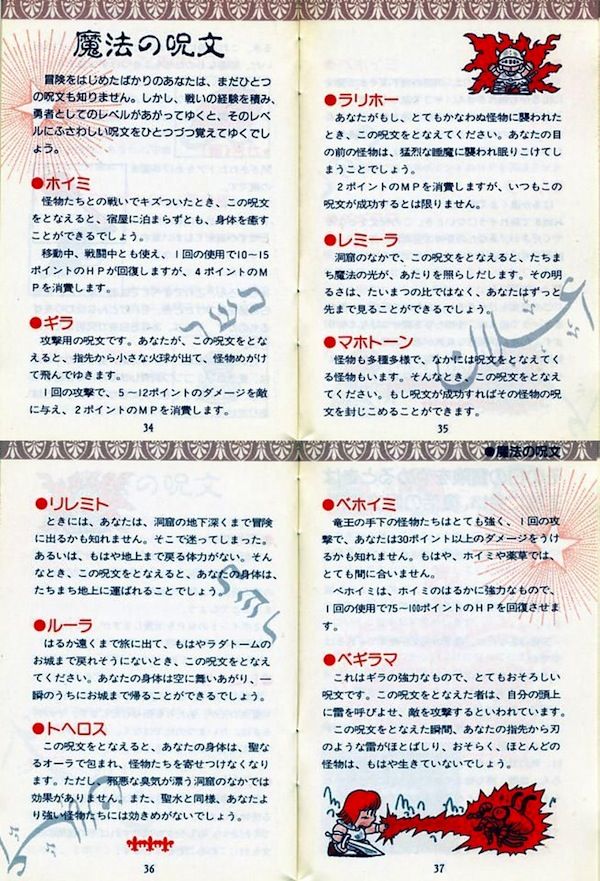 魔法の呪文
冒険をはじめたばかりのあなたは、まだひとつ
の呪文も知りません。しかし、戦いの経験を積み、
勇者としてのレベルがあがってゆくと、そのレベ
ルにふさわしい呪文をひとつづつ覚えてゆくでし
ょう。
●ホイミ
怪物たちとの戦いでキズついたとき、この呪文
をとなえると、宿屋に泊まらずとも、身体を癒す
ことができるでしょう。
移動中、戦闘中とも使え、1回の使用で10〜15
ポイントのHPが回復しますが、4ポイントのM
Pを消費します。
●ギラ
攻撃用の呪文です。あなたが、この呪文をとな
えると、指先から小さな火球が出て、怪物めがけ
て飛んでゆきます。
1回の攻撃で、5〜12ポイントのダメージを敵
に与え、2ポイントのMPを消費します。
34
●ラリホー
あなたがもし、とてもかなわぬ怪物に襲われた
とき、この呪文をとなえてください。あなたの目
の前の怪物は、猛烈な睡魔に襲われ眠りこけてし
まうことでしょう。
2ポイントのMPを消費しますが、いつもこの
呪文が成功するとは限りません。
●レミーラ
洞窟のなかで、この呪文をとなえると、たちま
ち魔法の光が、あたりを照らしだします。その明
るさは、たいまつの比ではなく、あなたはずっと
先まで見ることができるでしょう。
●マホトーン
怪物も多種多様で、なかには呪文をとなえてく
る怪物もいます。そんなとき、この呪文をとなえ
てください。もし呪文が成功すればその怪物の呪
文を封じこめることができます。
35
●リレミト
ときには、あなたは、洞窟の地下深くまで冒険
に出るかも知れません。そこで迷ってしまった。
あるいは、もはや地上まで戻る体力がない。そん
なとき、この呪文をとなえると、あなたの身体は、
たちまち地上に運ばれることでしょう。
●ルーラ
はるか遠くまで旅に出て、もはやラダトームの
お城まで戻れそうにないとき、この呪文をとなえ
てください。あなたの身体は空に舞いあがり、一
瞬のうちにお城まで帰ることができるでしょう。
●トヘロス
この呪文をとなえると、あなたの身体は、聖な
るオーラで包まれ、怪物たちを寄せつけなくなり
ます。ただし、邪悪な臭気が漂う洞窟のなかでは
効果がありません。また、聖水と同様、あなたよ
り強い怪物たちには効きめがないでしょう。
36
●魔法の呪文
●ベホイミ
竜王の手下の怪物たちはとても強く、1回の攻
撃で、あなたは30ポイント以上のダメージをうけ
るかも知れません。もはや、ホイミや薬草では、
とても間に合いません。
ベホイミは、ホイミのはるかに強力なもので、
1回の使用で75〜100ポイントのHPを回復させま
す。
●ベギラマ
これはギラの強力なもので、とてもおそろしい
呪文です。この呪文をとなえた者は、自分の頭上
に雷を呼びよせ、敵を攻撃するといわれています。
この呪文をとなえた瞬間、あなたの指先から刃
のような雷がほとばしり、おそらく、ほとんどの
怪物は、もはや生きていないでしょう。
37